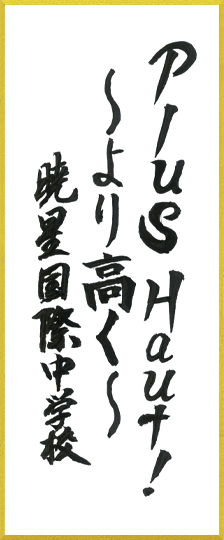 Plus Haut!
~より高く~
暁星国際中学校